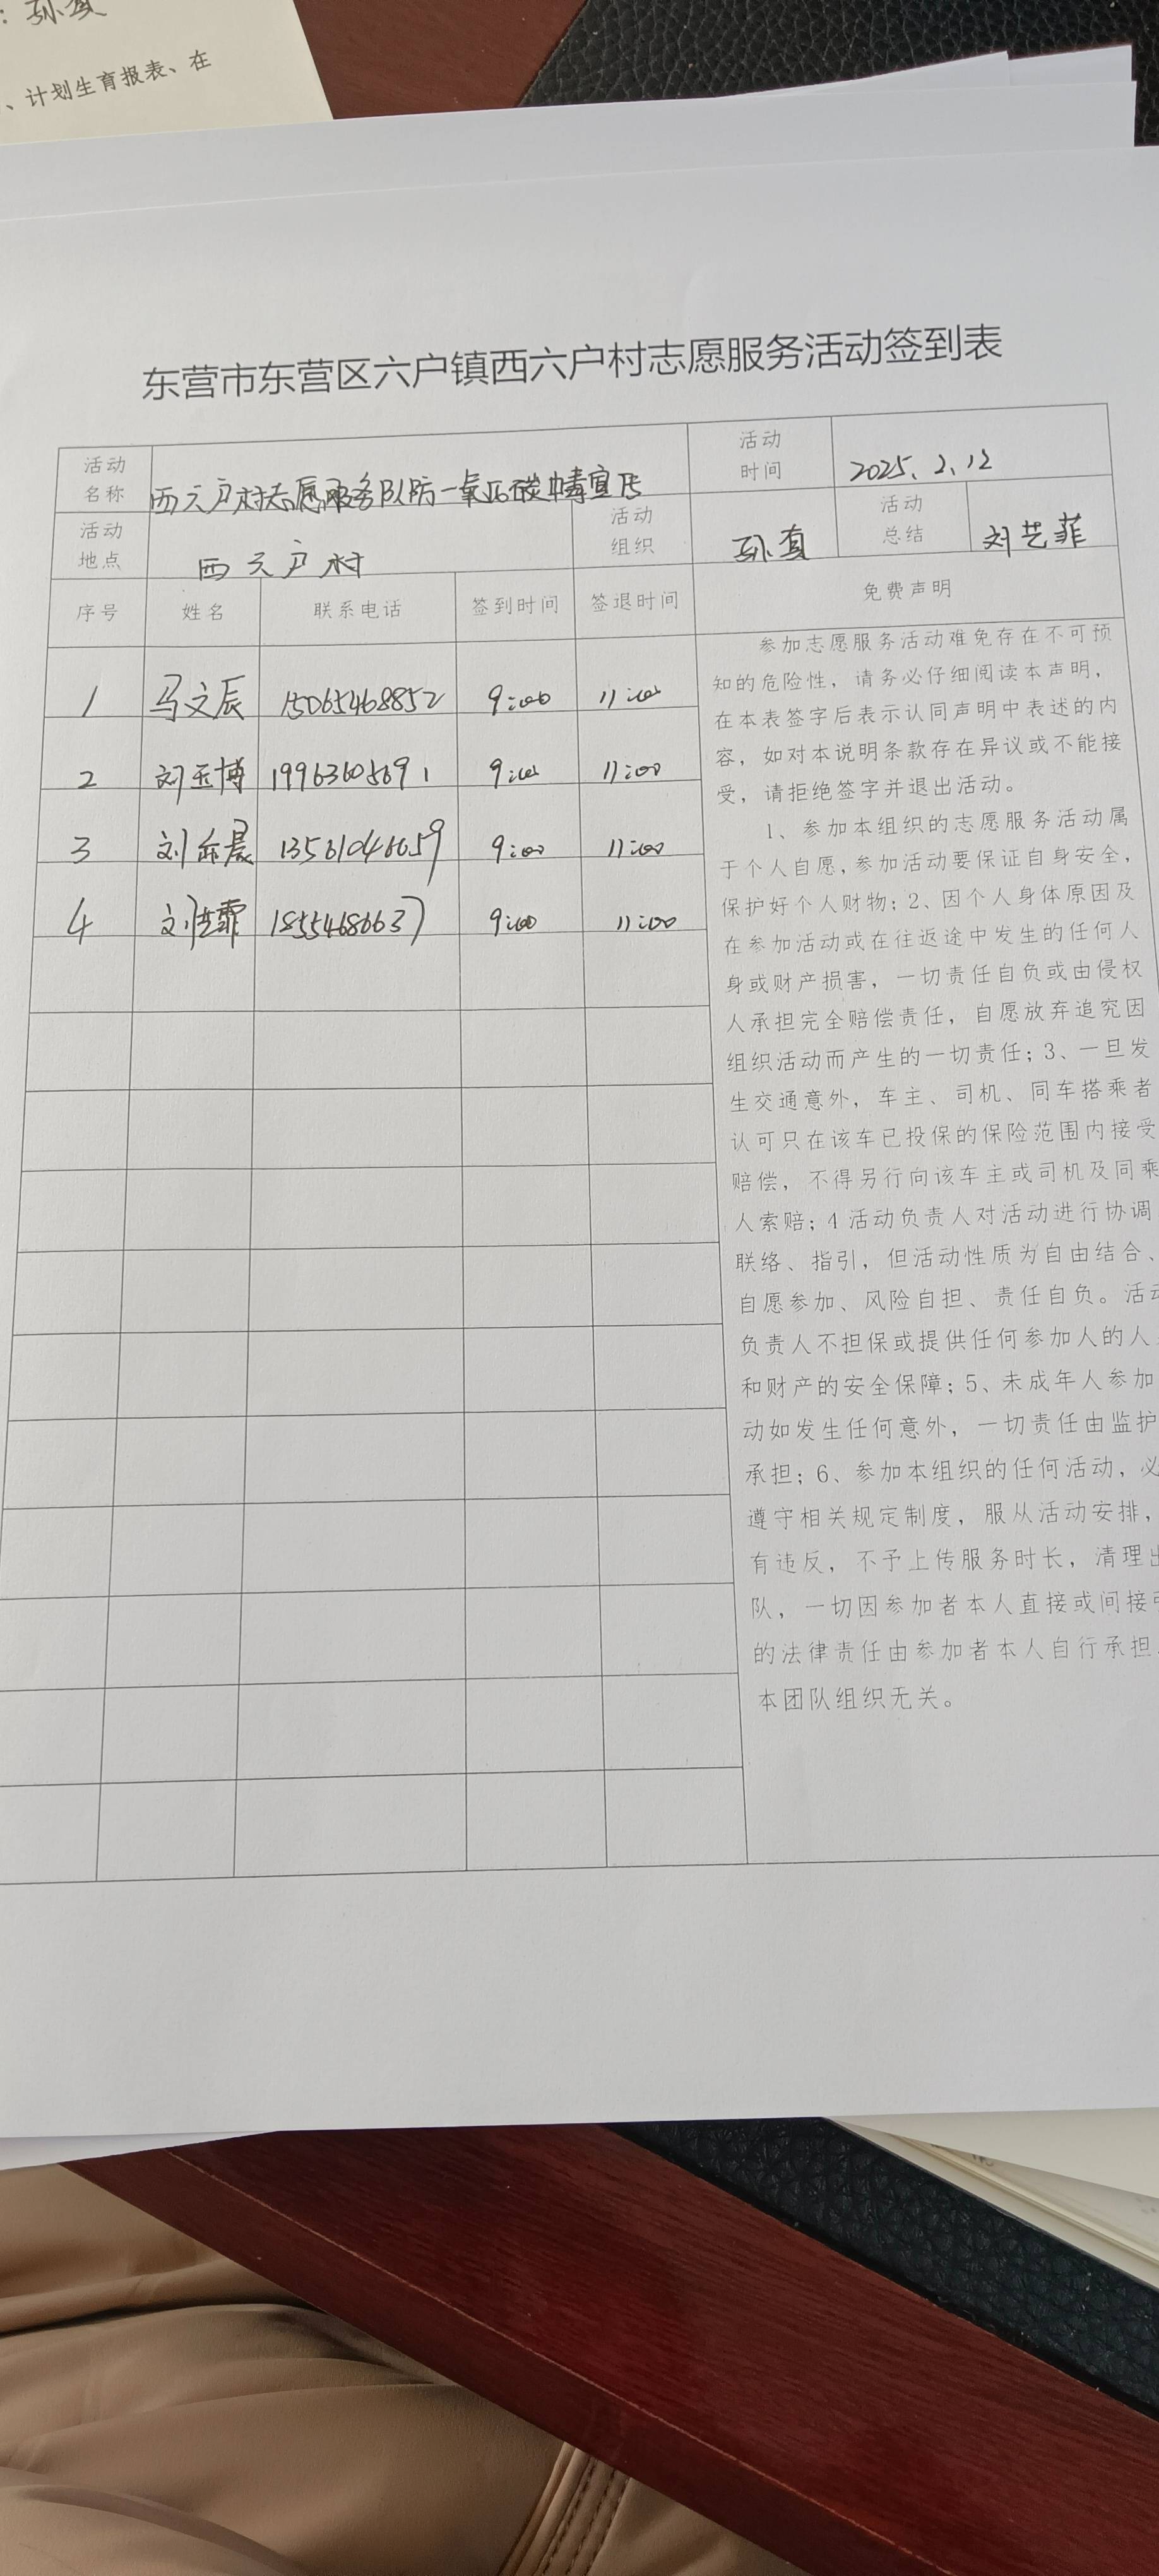 :孙真
、计划生育报表、在
东营市东营区六户镇西六户村志愿服务活动签到表
活动名称 西六户村志愿服务队防一氧化碳中毒宣传 活动时间 2025.2.12
活动地点 西六户村 活动组织 孙真 活动总结 刘艺菲
序号 姓名 联系电话 签到时间 签退时间 免费声明
1 马文辰 15065468852 9:00 11:00
2 刘玉博 19963605691 9:00 11:00
3 刘 晨 13561046659 9:00 11:00
4 刘艺霏 18554686637 9:00 11:00
参加志愿服务活动难免存在不可预
知的危险性，请务必仔细阅读本声明，
在本表签字后表示认同声明中表述的内
容，如对本说明条款存在异议或不能接
受，请拒绝签字并退出活动。
1、参加本组织的志愿服务活动属
于个人自愿，参加活动要保证自身安全，
保护好个人财物；2、因个人身体原因及
在参加活动或在往返途中发生的任何人
身或财产损害，一切责任自负或由侵权
人承担完全赔偿责任，自愿放弃追究因
组织活动而产生的一切责任；3、一旦发
生交通意外，车主、司机、同车搭乘者
认可只在该车已投保的保险范围内接受
赔偿，不得另行向该车主或司机及同乘
人索赔；4活动负责人对活动进行协调
联络、指引，但活动性质为自由结合、
自愿参加、风险自担、责任自负。活动
负责人不担保或提供任何参加人的人
和财产的安全保障；5、未成年人参加
动如发生任何意外，一切责任由监护
承担；6、参加本组织的任何活动，必
遵守相关规定制度，服从活动安排，
有违反，不予上传服务时长，清理出
队，一切因参加者本人直接或间接引
的法律责任由参加者本人自行承担
本团队组织无关。